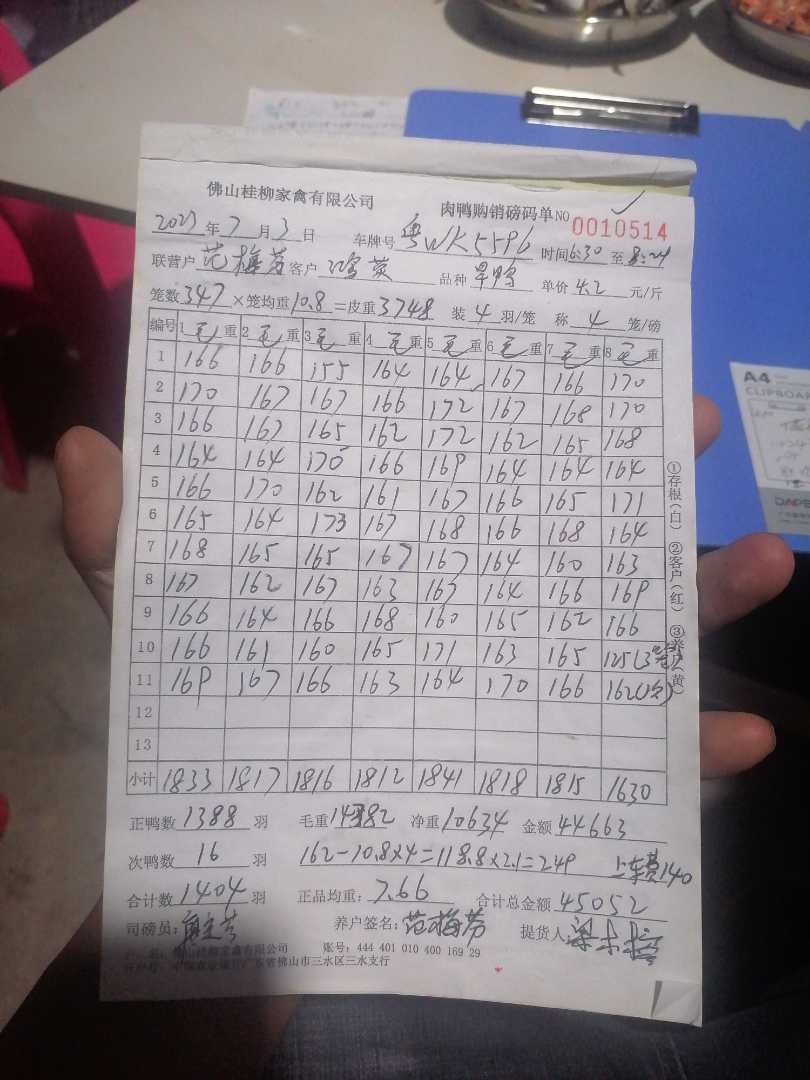 佛山桂柳家禽有限公司 肉鸭购销磅码单 NO 0010514
2021年7月3日 车牌号 粤WK5596 时间 6:30 至 8:24
联营户 范梅芬 客户 鸿英 品种 旱鸭 单价 4.2 元/斤
笼数 347 ×笼均重 10.8 =皮重 3748 装 4 羽/笼 称 4 笼/磅
编号 1 毛重 2 毛重 3 毛重 4 毛重 5 毛重 6 毛重 7 毛重 8 毛重
1 166 166 155 164 164 167 166 170
2 170 167 167 166 172 167 168 170
3 166 167 165 162 172 162 165 168
4 164 164 170 166 169 164 164 164
5 166 170 162 161 167 166 165 171
6 165 164 173 167 168 166 168 164
7 168 165 165 167 167 164 160 163
8 167 162 167 163 167 164 166 169
9 166 164 166 168 160 165 162 166
10 166 161 160 165 171 163 165 125(3笼)
11 169 167 166 163 164 170 166 162(次)
12
13
小计 1833 1817 1816 1812 1841 1818 1815 1630
①存根(白) ②客户(红) ③养户(黄)
正鸭数 1388 羽 毛重 14382 净重 10634 金额 44663
次鸭数 16 羽 162-10.8×4=118.8×2.1=249 上车费140
合计数 1404 羽 正品均重: 7.66 合计总金额 45052
司磅员: 养户签名: 范梅芬 提货人
户 名: 佛山桂柳家禽有限公司 账号: 444 401 010 400 169 29
佛山市三水区三水支行
A4
CLIPBOARD